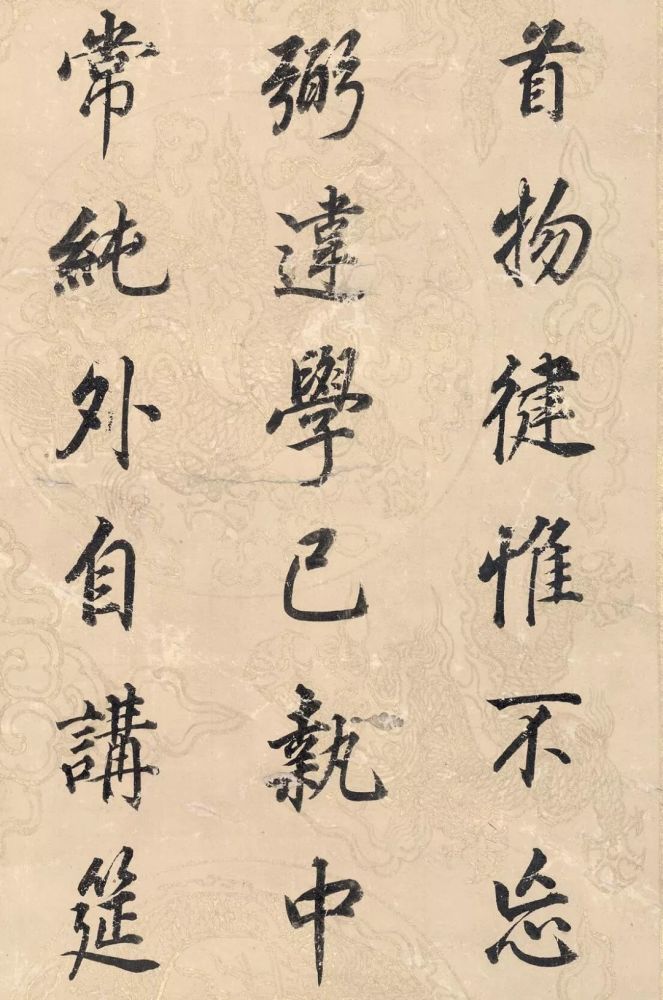 首物徤惟不忘
弼違學已執中
常純外自講筵